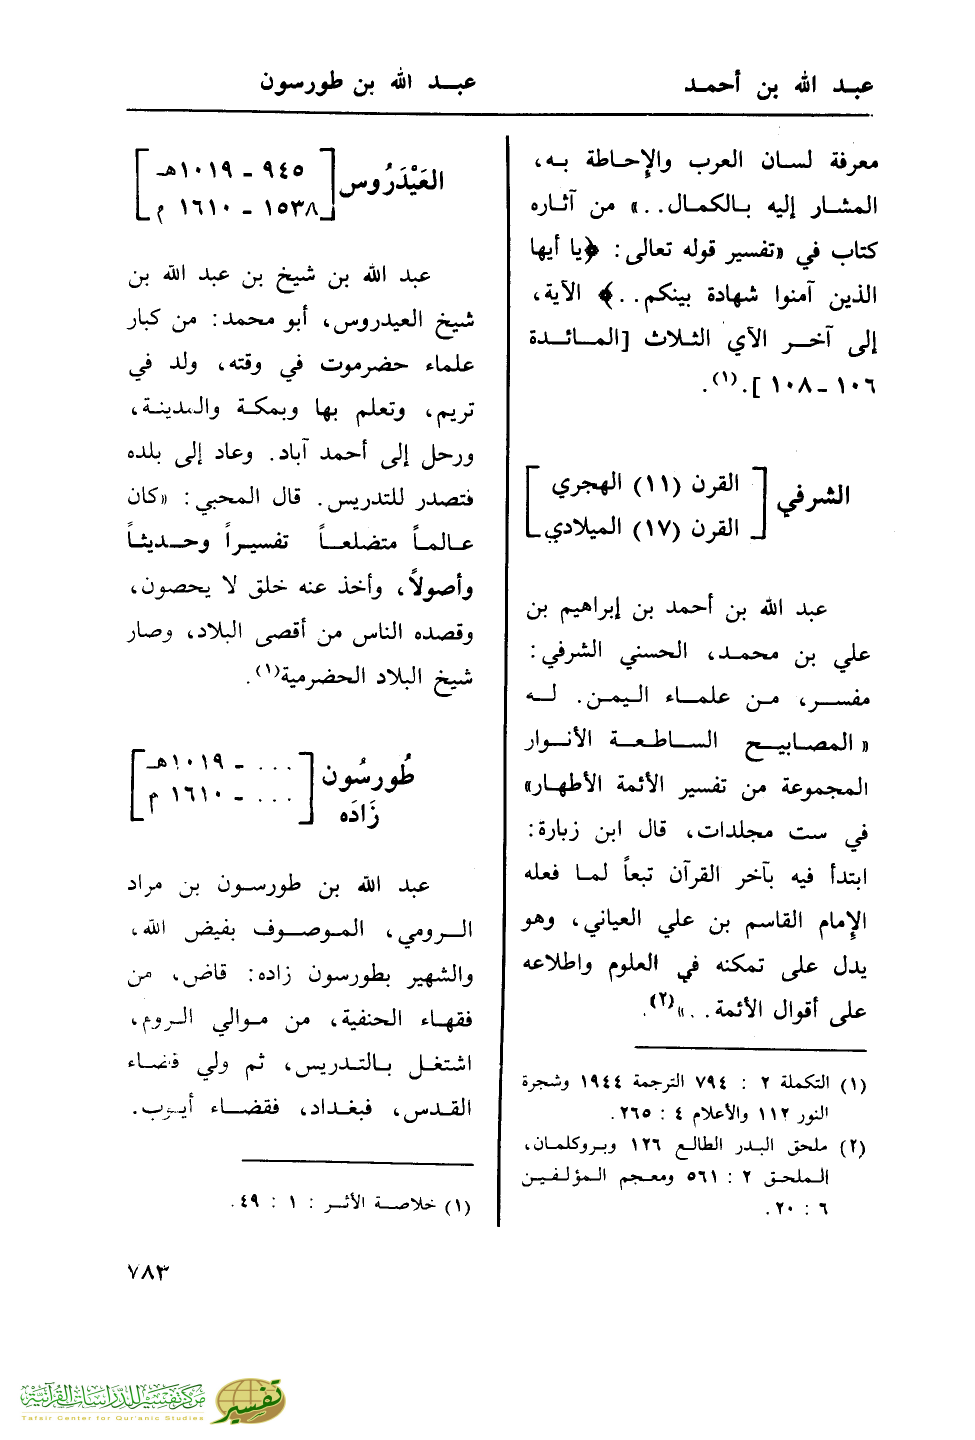 عبد الله بن أحمد
عبد الله بن طورسون
معرفة لسان العرب والإحاطة به،
المشار إليه بالكمال..» من آثاره
كتاب في «تفسير قوله تعالى: ﴿يا أيها
الذين آمنوا شهادة بينكم..﴾ الآية،
إلى آخر الآي الثلاث [المائدة
١٠٦ـ١٠٨].(١).
الشرفي [القرن (١١) الهجري
القرن (١٧) الميلادي]
عبد الله بن أحمد بن إبراهيم بن
علي بن محمد، الحسني الشرفي:
مفسر، من علماء اليمن. له
«المصابيح الساطعة الأنوار
المجموعة من تفسير الأئمة الأطهار»
في ست مجلدات، قال ابن زبارة:
ابتدأ فيه بآخر القرآن تبعاً لما فعله
الإمام القاسم بن علي العياني، وهو
يدل على تمكنه في العلوم واطلاعه
على أقوال الأئمة..»(٢).
(١) التكملة ٢ : ٧٩٤ الترجمة ١٩٤٤ وشجرة
النور ١١٢ والأعلام ٤ : ٢٦٥.
(٢) ملحق البدر الطالع ١٢٦ وبروكلمان،
الملحق ٢ : ٥٦١ ومعجم المؤلفين
٦ : ٢٠.
العَيْدَرُوس [٩٤٥ ـ ١٠١٩هـ
١٥٣٨ ـ ١٦١٠ م]
عبد الله بن شيخ بن عبد الله بن
شيخ العيدروس، أبو محمد: من كبار
علماء حضرموت في وقته، ولد في
تريم، وتعلم بها وبمكة والمدينة،
ورحل إلى أحمد آباد. وعاد إلى بلده
فتصدر للتدريس. قال المحبي: «كان
عالماً متضلعاً تفسيراً وحديثاً
وأصولاً، وأخذ عنه خلق لا يحصون،
وقصده الناس من أقصى البلاد، وصار
شيخ البلاد الحضرمية(١).
طُورسُون [... ـ ١٠١٩هـ
زَادَه ... ـ ١٦١٠ م]
عبد الله بن طورسون بن مراد
الرومي، الموصوف بفيض الله،
والشهير بطورسون زاده: قاض، من
فقهاء الحنفية، من موالي الروم،
اشتغل بالتدريس، ثم ولي قضاء
القدس، فبغداد، فقضاء أيوب.
(١) خلاصة الأثر : ١ : ٤٩.
٧٨٣
مركز تفسير للدراسات القرآنية
Tafsir Center for Qur'anic Studies
تفسير